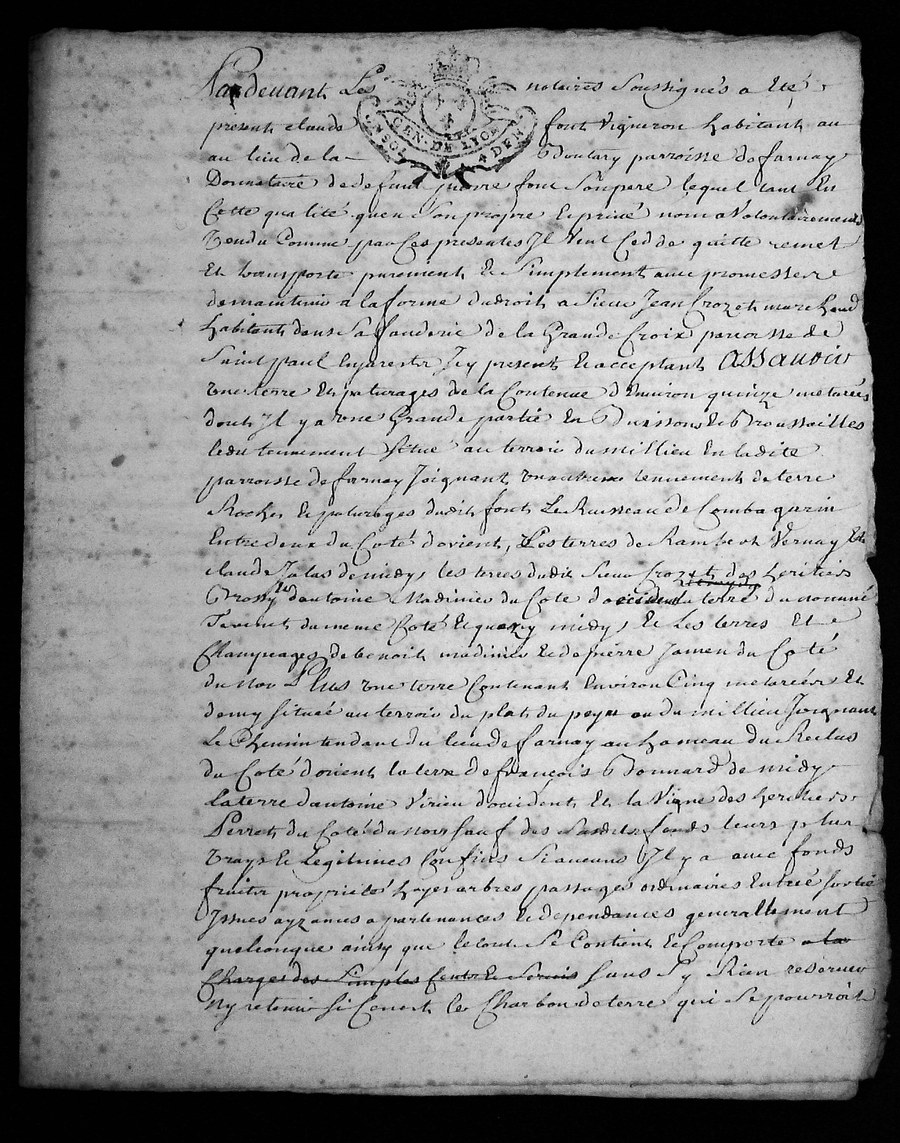 Pardevant Les notaires Soussignés a Eté
present claude font Vigneron habitant au
GEN. DE LYON
4 DEN
au lieu de la parroisse de farnay
Donnataire de defunt pierre font Son pere lequel tant En
Cette qualité qu'en Son propre Et privé nom a Volontairement
Vendu Comme par Ces presentes Il Vend Cedde quitte remet
Et transporte purement Et Simplement avec promesse
de maintenir a la forme du droit, a Sieur Jean Crozet marchand
habitant dans Sa de la Grande Croix parroisse de
Saint paul En jarest Icy present Et acceptant Assavoir
une terre Et paturages de la Contenue d'Environ quinze metarées
dont Il y a une Grande partie En Buissons Et Broussailles
le dit tennement Situé au terroir du millieu En ladite
parroisse de farnay Joignant un autre tennement de terre
Rocher Et paturages dudit font Le Ruisseau de Combaqurin
Entre deux du Coté d'orient, Les terres de Rambert Vernay Et
claude Jalas de midy, les terres dudit Sieur Crozet des heritiers
d'antoine Madinier du Coté d'occident la terre du nommé
du meme Coté Et midy, Et Les terres Et
Champeages de benoit madinier Et de pierre Jamen du Coté
du nor Plus une terre Contenant Environ Cinq metarées Et
demy Située au terroir du plat du peyu ou du millieu Joignant
Le Chemin tendant du lieu de farnay au hameau du Reclus
du Coté d'orient la terre de françois Bonnard de midy
La terre d'antoine Virieu d'occident Et la Vigne des heritiers
Perret du Coté du nor Sauf des Susdits fonds leurs plus
Vrays Et Legitimes Confins Si aucuns Il y a avec fonds
fruits propriété hayes arbres passages ordinaires Entrée Sortie
Issues ayzances apartenances Et dependances generallement
quelconque ainsy que le tout Se Contient Et Comporte a la
Charges des Simples Cens Et Servis Sans S'y Rien reserver
Ny retenir Si Cenest le Charbon de terre qui Se pourroit